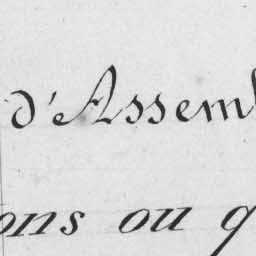 d'Assem
ons ou q